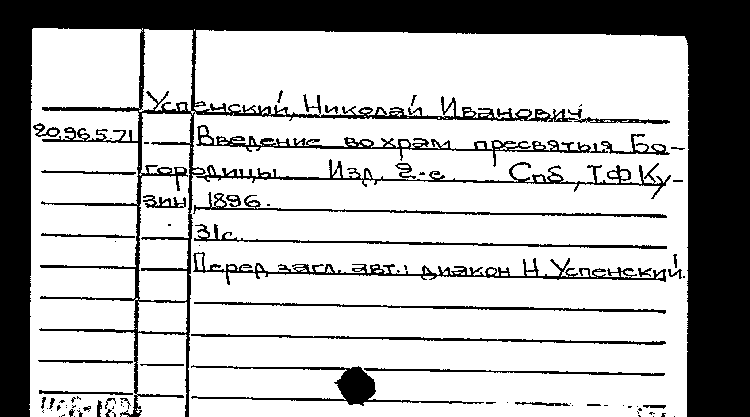 Успенский, Николай Иванович.
20.96.5.71 Введение во храм пресвятыя Бо-
городицы. Изд. 2-е. Спб, Т.Ф Ку-
зин, 1896.
31с.
Перед загл. авт.: диакон Н. Успенский.